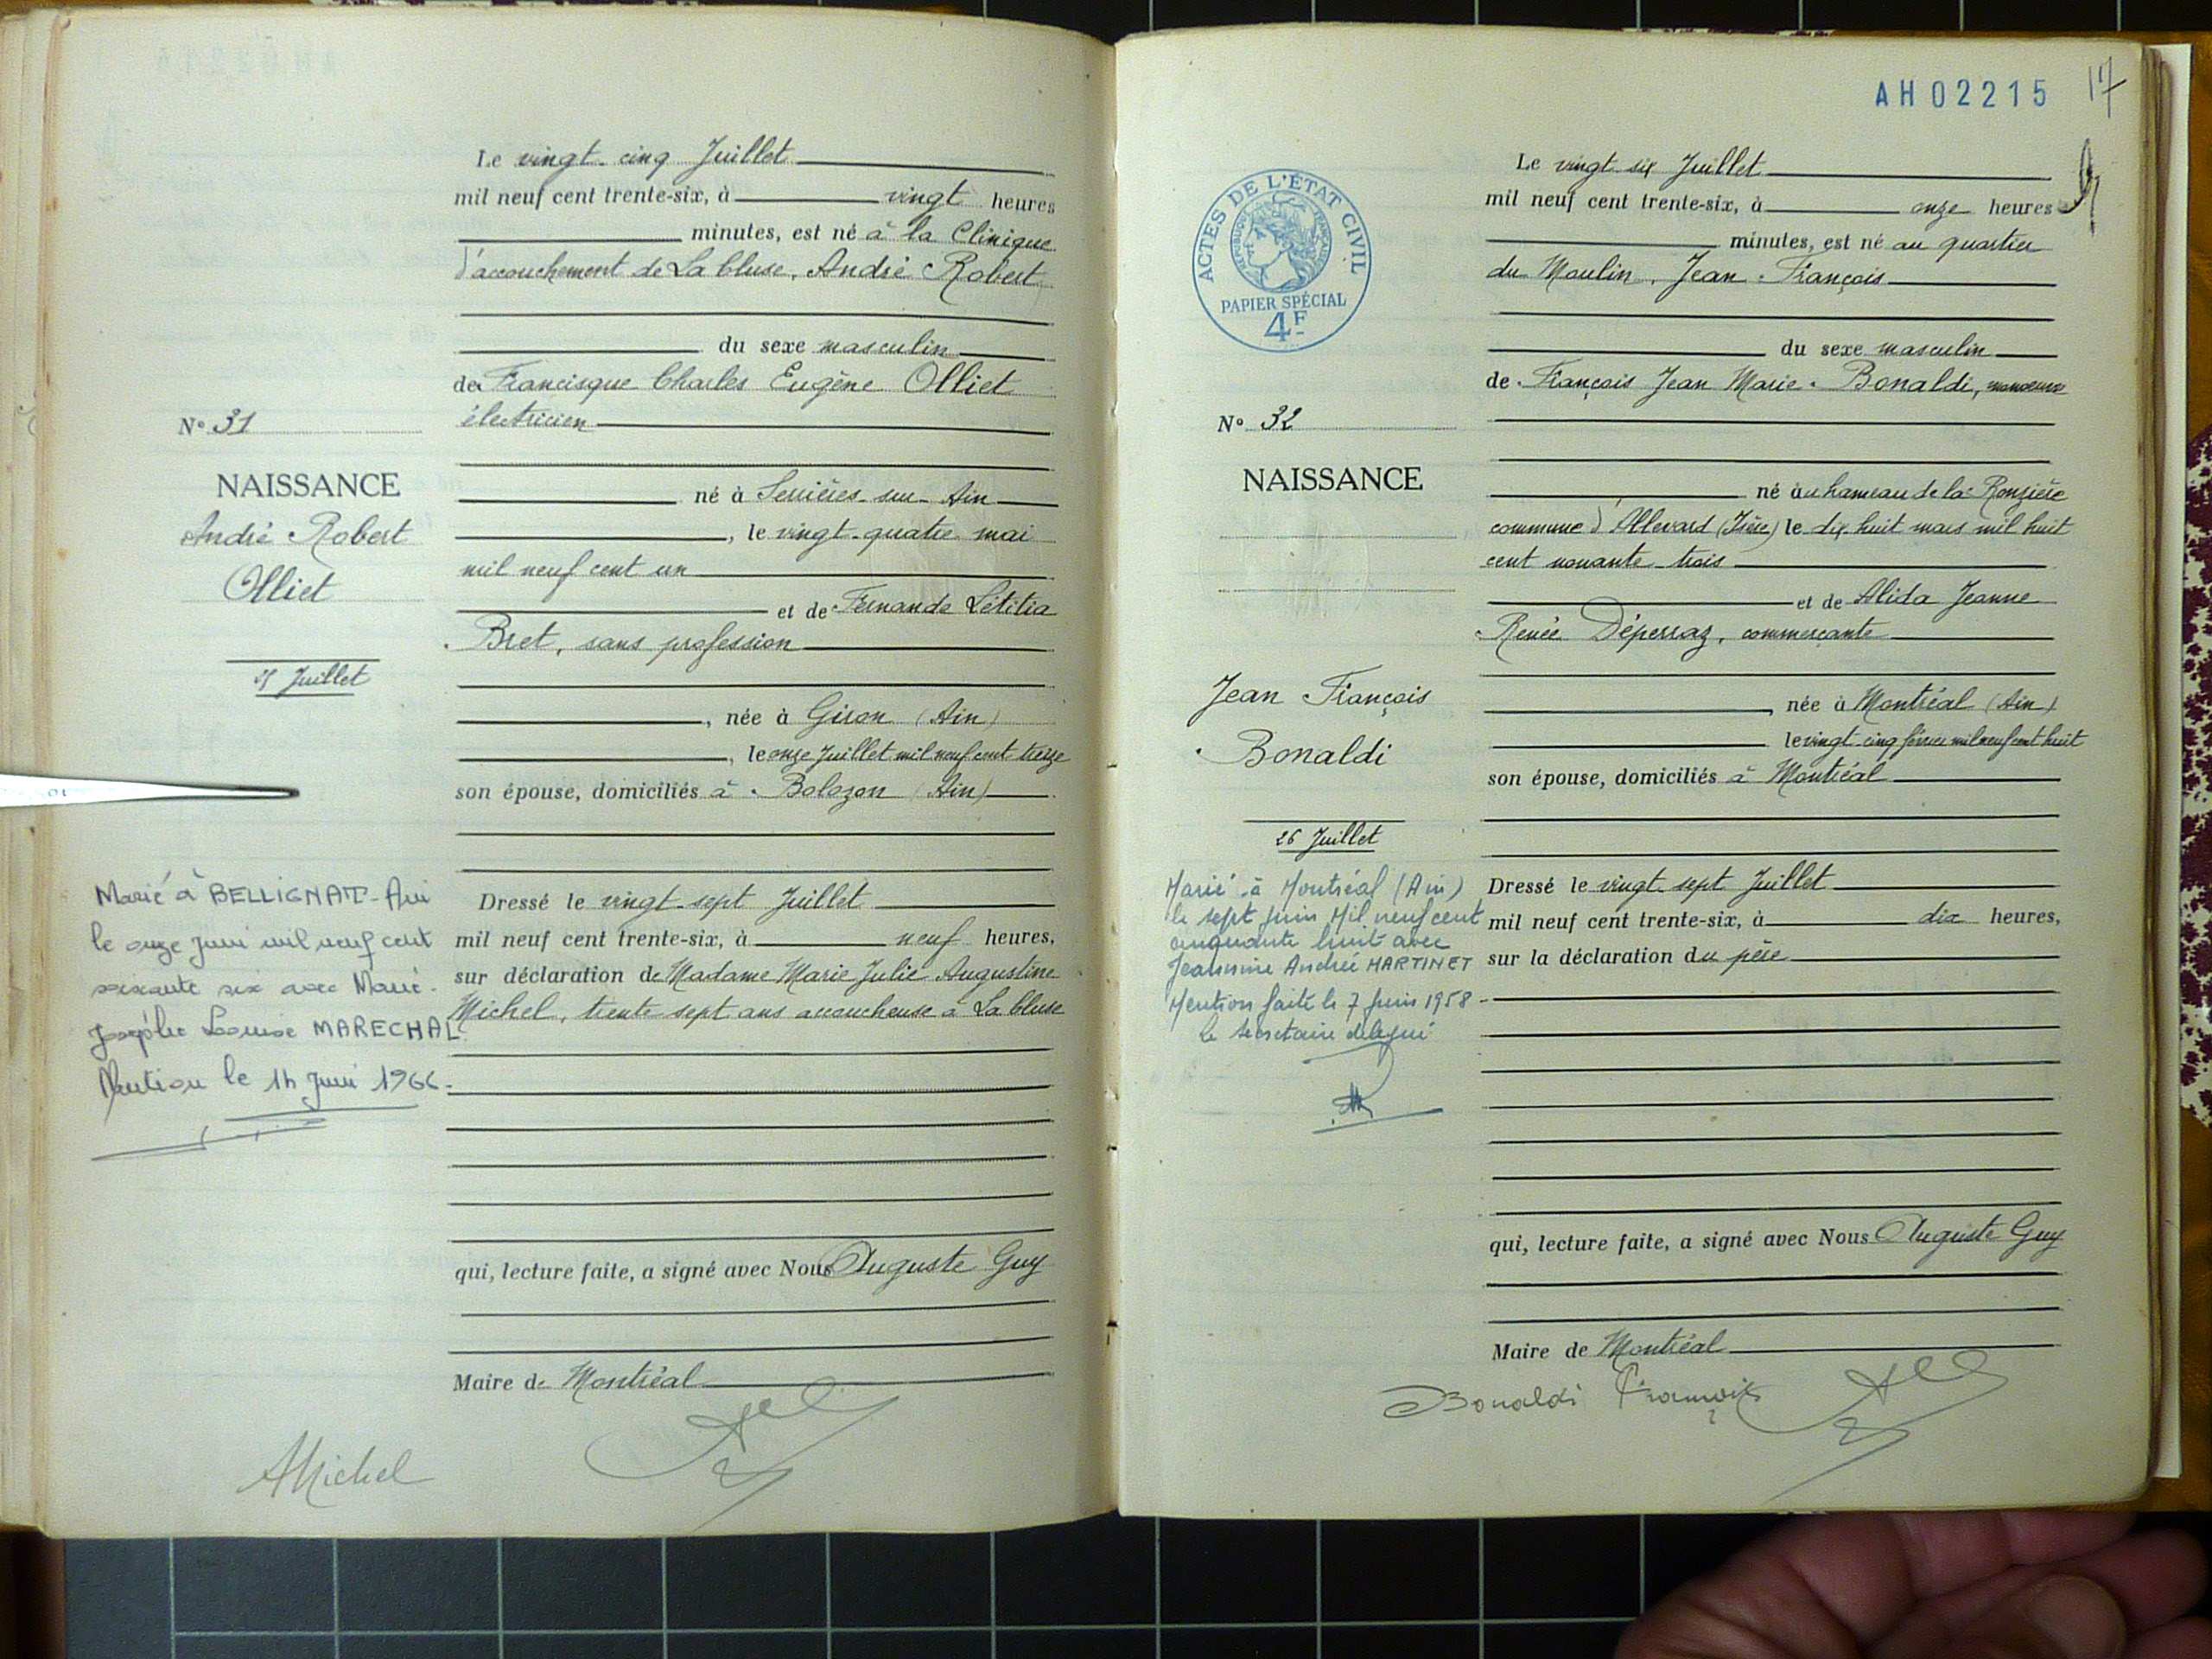 Le vingt-cinq Juillet
mil neuf cent trente-six, à vingt heures
minutes, est né à la Clinique
d'accouchement de La bluse, André Robert
du sexe masculin
de Francisque Charles Eugène Olliet
électricien
né à Serrières-sur-Ain
, le vingt-quatre mai
mil neuf cent un
et de Fernande Létitia
Bret, sans profession
, née à Giron (Ain)
, le onze Juillet mil neuf cent treize
son épouse, domiciliés à Bolozon (Ain)
Dressé le vingt-sept Juillet
mil neuf cent trente-six, à neuf heures,
sur déclaration de Madame Marie Julie Augustine
Michel, trente sept ans accoucheuse à La bluse
qui, lecture faite, a signé avec Nous Auguste Guy
Maire de Montréal
AMichel
N° 31
NAISSANCE
André Robert
Olliet
25 Juillet
Marié à BELLIGNAT-Ain
le onze juin mil neuf cent
soixante six avec Marie-
Josèphe Louise MARECHAL
Mention le 14 juin 1966.
AH02215 17
Le vingt-six Juillet
mil neuf cent trente-six, à onze heures
minutes, est né au quartier
du Moulin, Jean-François
du sexe masculin
de François Jean Marie Bonaldi, manoeuvre
né au hameau de la Ronzière
commune d'Allevard (Isère) le dix-huit mars mil huit
cent nonante-trois
et de Alida Jeanne
Renée Déperraz, commerçante
, née à Montréal (Ain)
le vingt-cinq février mil neuf cent huit
son épouse, domiciliés à Montréal
Dressé le vingt-sept Juillet
mil neuf cent trente-six, à dix heures,
sur la déclaration du père
qui, lecture faite, a signé avec Nous Auguste Guy
Maire de Montréal
Bonaldi François
ACTES DE L'ÉTAT CIVIL
RÉPUBLIQUE FRANÇAISE
PAPIER SPÉCIAL
4F
N° 32
NAISSANCE
Jean François
Bonaldi
26 Juillet
Marié à Montréal (Ain)
le sept juin Mil neuf cent
cinquante huit avec
Jeannine Andrée MARTINET
Mention faite le 7 Juin 1958
le secrétaire délégué